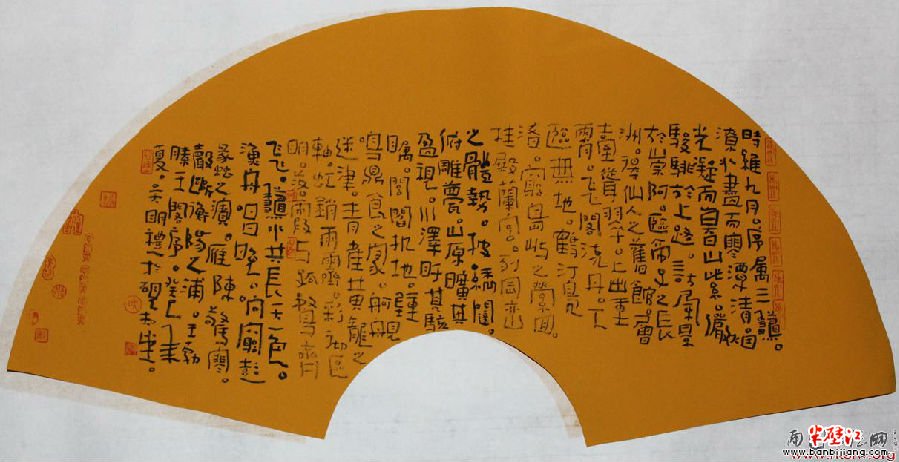 時維九月。序属三秋。
潦水盡而寒潭清。烟
光凝而暮山紫。儼
驂騑於上路。訪風景
於崇阿。臨帝子之長
洲。得仙人之舊館。層
臺聳翠。上出重
霄。飛閣流丹。下
臨無地。鶴汀鳧
渚。窮島嶼之縈迴。
桂殿蘭宮。列岡巒
之體勢。披繡闥。
俯雕甍。山原曠其
盈視。川澤盱其駭
矚。閭閻扑地。鐘
鳴鼎食之家。舸艦
迷津。青雀黃龍之
軸。虹銷雨霽。彩徹區
明。落霞與孤鶩齊
飛。秋水共長天一色。
漁舟唱晚。響窮彭
蠡之濱。雁陣驚寒。
聲斷衡陽之浦。王勃
滕王閣序。癸巳年
夏。明禮於硯
半壁江
网
www.banbijiang.com